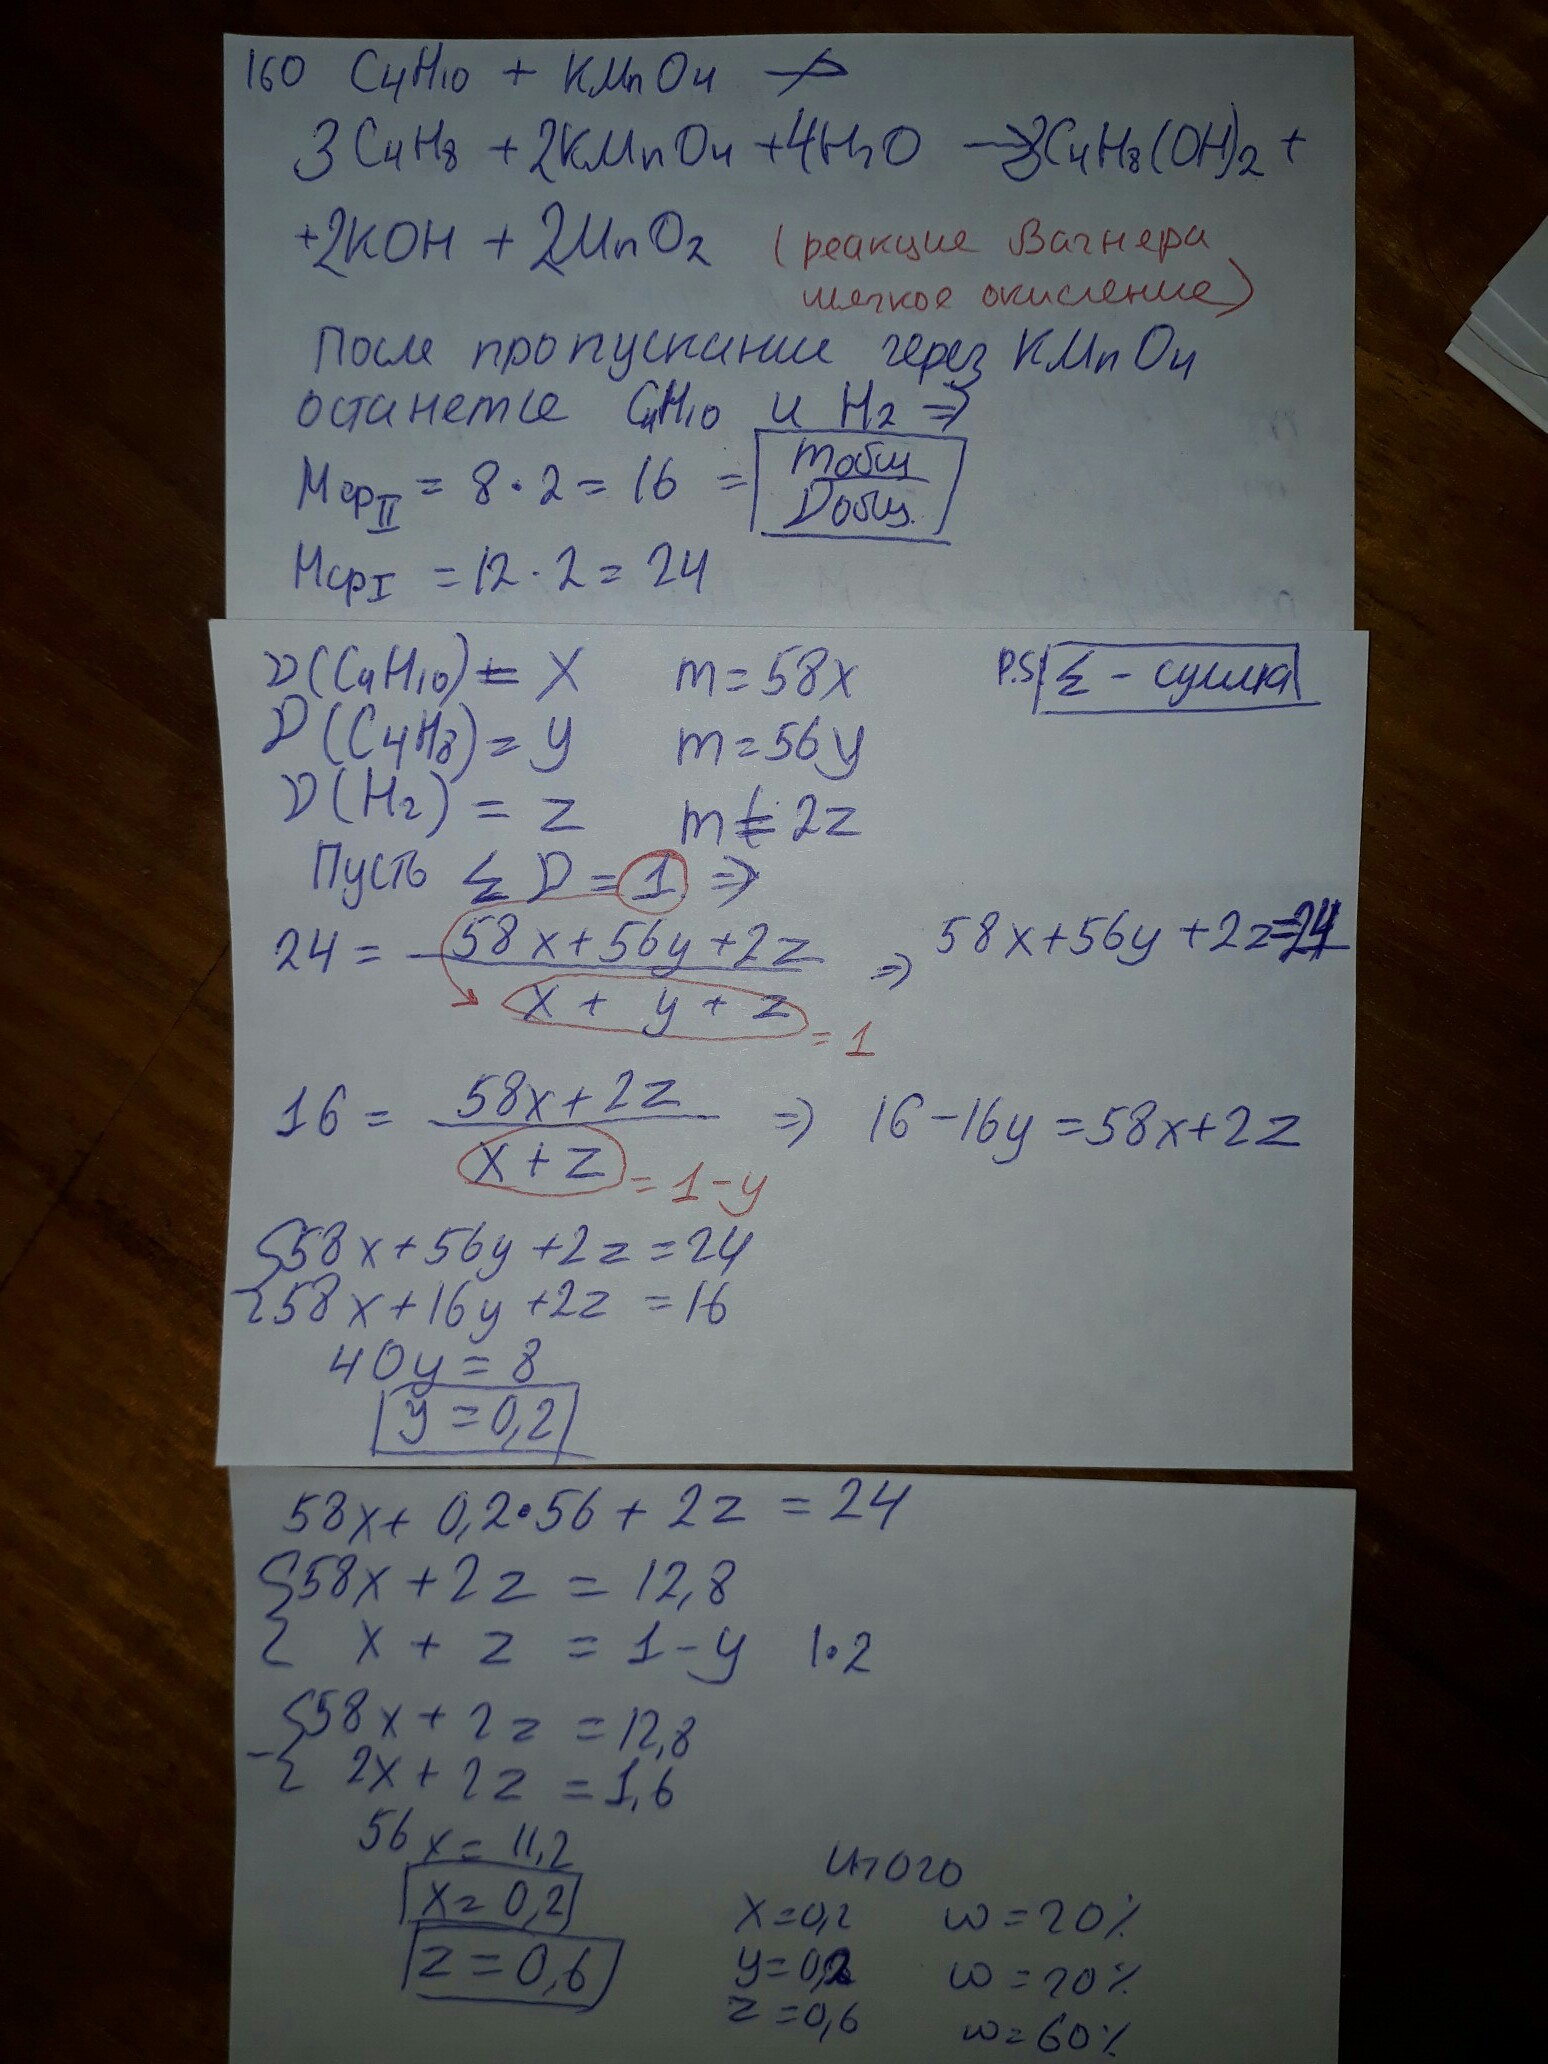 160 C4H10 + KMnO4 ↛
3C4H8 + 2KMnO4 + 4H2O → 3C4H8(OH)2 +
+2KOH + 2MnO2 (реакцие Вагнера
мягкое окисление)
После пропускание через KMnO4
останется C4H10 и H2 ⇒
МсрII = 8 · 2 = 16 = mобщ / νобщ.
МсрI = 12 · 2 = 24
ν(C4H10) = x m = 58x P.S| Σ - сумма
ν(C4H8) = y m = 56y
ν(H2) = z m = 2z
Пусть Σν = 1 ⇒
24 = (58x + 56y + 2z) / (x + y + z) ⇒ 58x + 56y + 2z = 24
= 1
16 = (58x + 2z) / (x + z) ⇒ 16 - 16y = 58x + 2z
= 1 - y
{58x + 56y + 2z = 24
-{58x + 16y + 2z = 16
40y = 8
y = 0,2
58x + 0,2 • 56 + 2z = 24
{58x + 2z = 12,8
{x + z = 1 - y |• 2
{58x + 2z = 12,8
-{2x + 2z = 1,6
56x = 11,2
x = 0,2
z = 0,6
Итого
x = 0,2 w = 20%
y = 0,2 w = 20%
z = 0,6 w = 60%